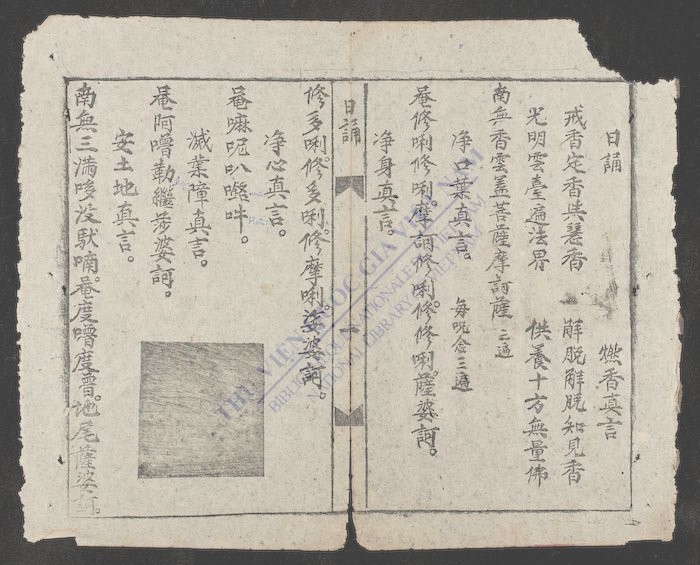 日誦 燃香真言
戒香定香共慧香 解脫解脫知見香
光明雲臺遍法界 供養十方無量佛
南無香雲盖菩薩摩訶薩 三遍
净口業真言。 每呪念三遍
菴修唎修唎。摩訶修唎。修修唎。薩婆訶。
净身真言。
日誦
一
修多唎。修多唎。修摩唎。娑婆訶。
净心真言。
菴嘛呢叭𡄣吽。
滅業障真言。
菴阿嚕勒繼莎婆訶。
安土地真言。
南無三滿哆没馱喃。菴度嚕度嚕。地尾薩婆訶。
THƯ VIỆN QUỐC GIA VIỆT NAM
BIBLIOTHÈQUE NATIONALE DU VIETNAM
NATIONAL LIBRARY OF VIETNAM